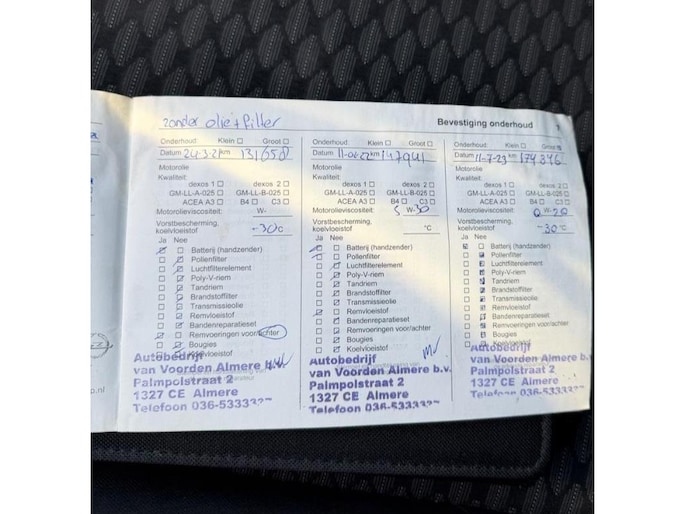 zonder olie+filter
Bevestiging onderhoud
Onderhoud: Klein Groot
Datum 24-3-21 km 131658
Motorolie
Kwaliteit:
dexos 1 dexos 2
GM-LL-A-025 GM-LL-B-025
ACEA A3 B4 C3
Motorolieviscositeit: W-
Vorstbescherming,
koelvloeistof -30 C
Ja Nee
Batterij (handzender)
Pollenfilter
Luchtfilterelement
Poly-V-riem
Tandriem
Brandstoffilter
Transmissieolie
Remvloeistof
Bandenreparatieset
Remvoeringen voor/achter
Bougies
Koelvloeistof
Autobedrijf
van Voorden Almere b.v.
Palmpolstraat 2
1327 CE Almere
Telefoon 036-533333
Onderhoud: Klein Groot
Datum km
Motorolie
Kwaliteit:
dexos 1 dexos 2
GM-LL-A-025 GM-LL-B-025
ACEA A3 B4 C3
Motorolieviscositeit: 5 W-30
Vorstbescherming,
koelvloeistof °C
Ja Nee
Batterij (handzender)
Pollenfilter
Luchtfilterelement
Poly-V-riem
Tandriem
Brandstoffilter
Transmissieolie
Remvloeistof
Bandenreparatieset
Remvoeringen voor/achter
Bougies
Koelvloeistof
Autobedrijf
van Voorden Almere b.v.
Palmpolstraat 2
1327 CE Almere
Telefoon 036-533333
Onderhoud: Klein Groot
Datum 11-7-23 km 174346
Motorolie
Kwaliteit:
dexos 1 dexos 2
GM-LL-A-025 GM-LL-B-025
ACEA A3 B4 C3
Motorolieviscositeit: 0 W-20
Vorstbescherming,
koelvloeistof -30 °C
Ja Nee
Batterij (handzender)
Pollenfilter
Luchtfilterelement
Poly-V-riem
Tandriem
Brandstoffilter
Transmissieolie
Remvloeistof
Bandenreparatieset
Remvoeringen voor/achter
Bougies
Koelvloeistof
Autobedrijf
van Voorden Almere b.v.
Palmpolstraat 2
1327 CE Almere
Telefoon 036-533333